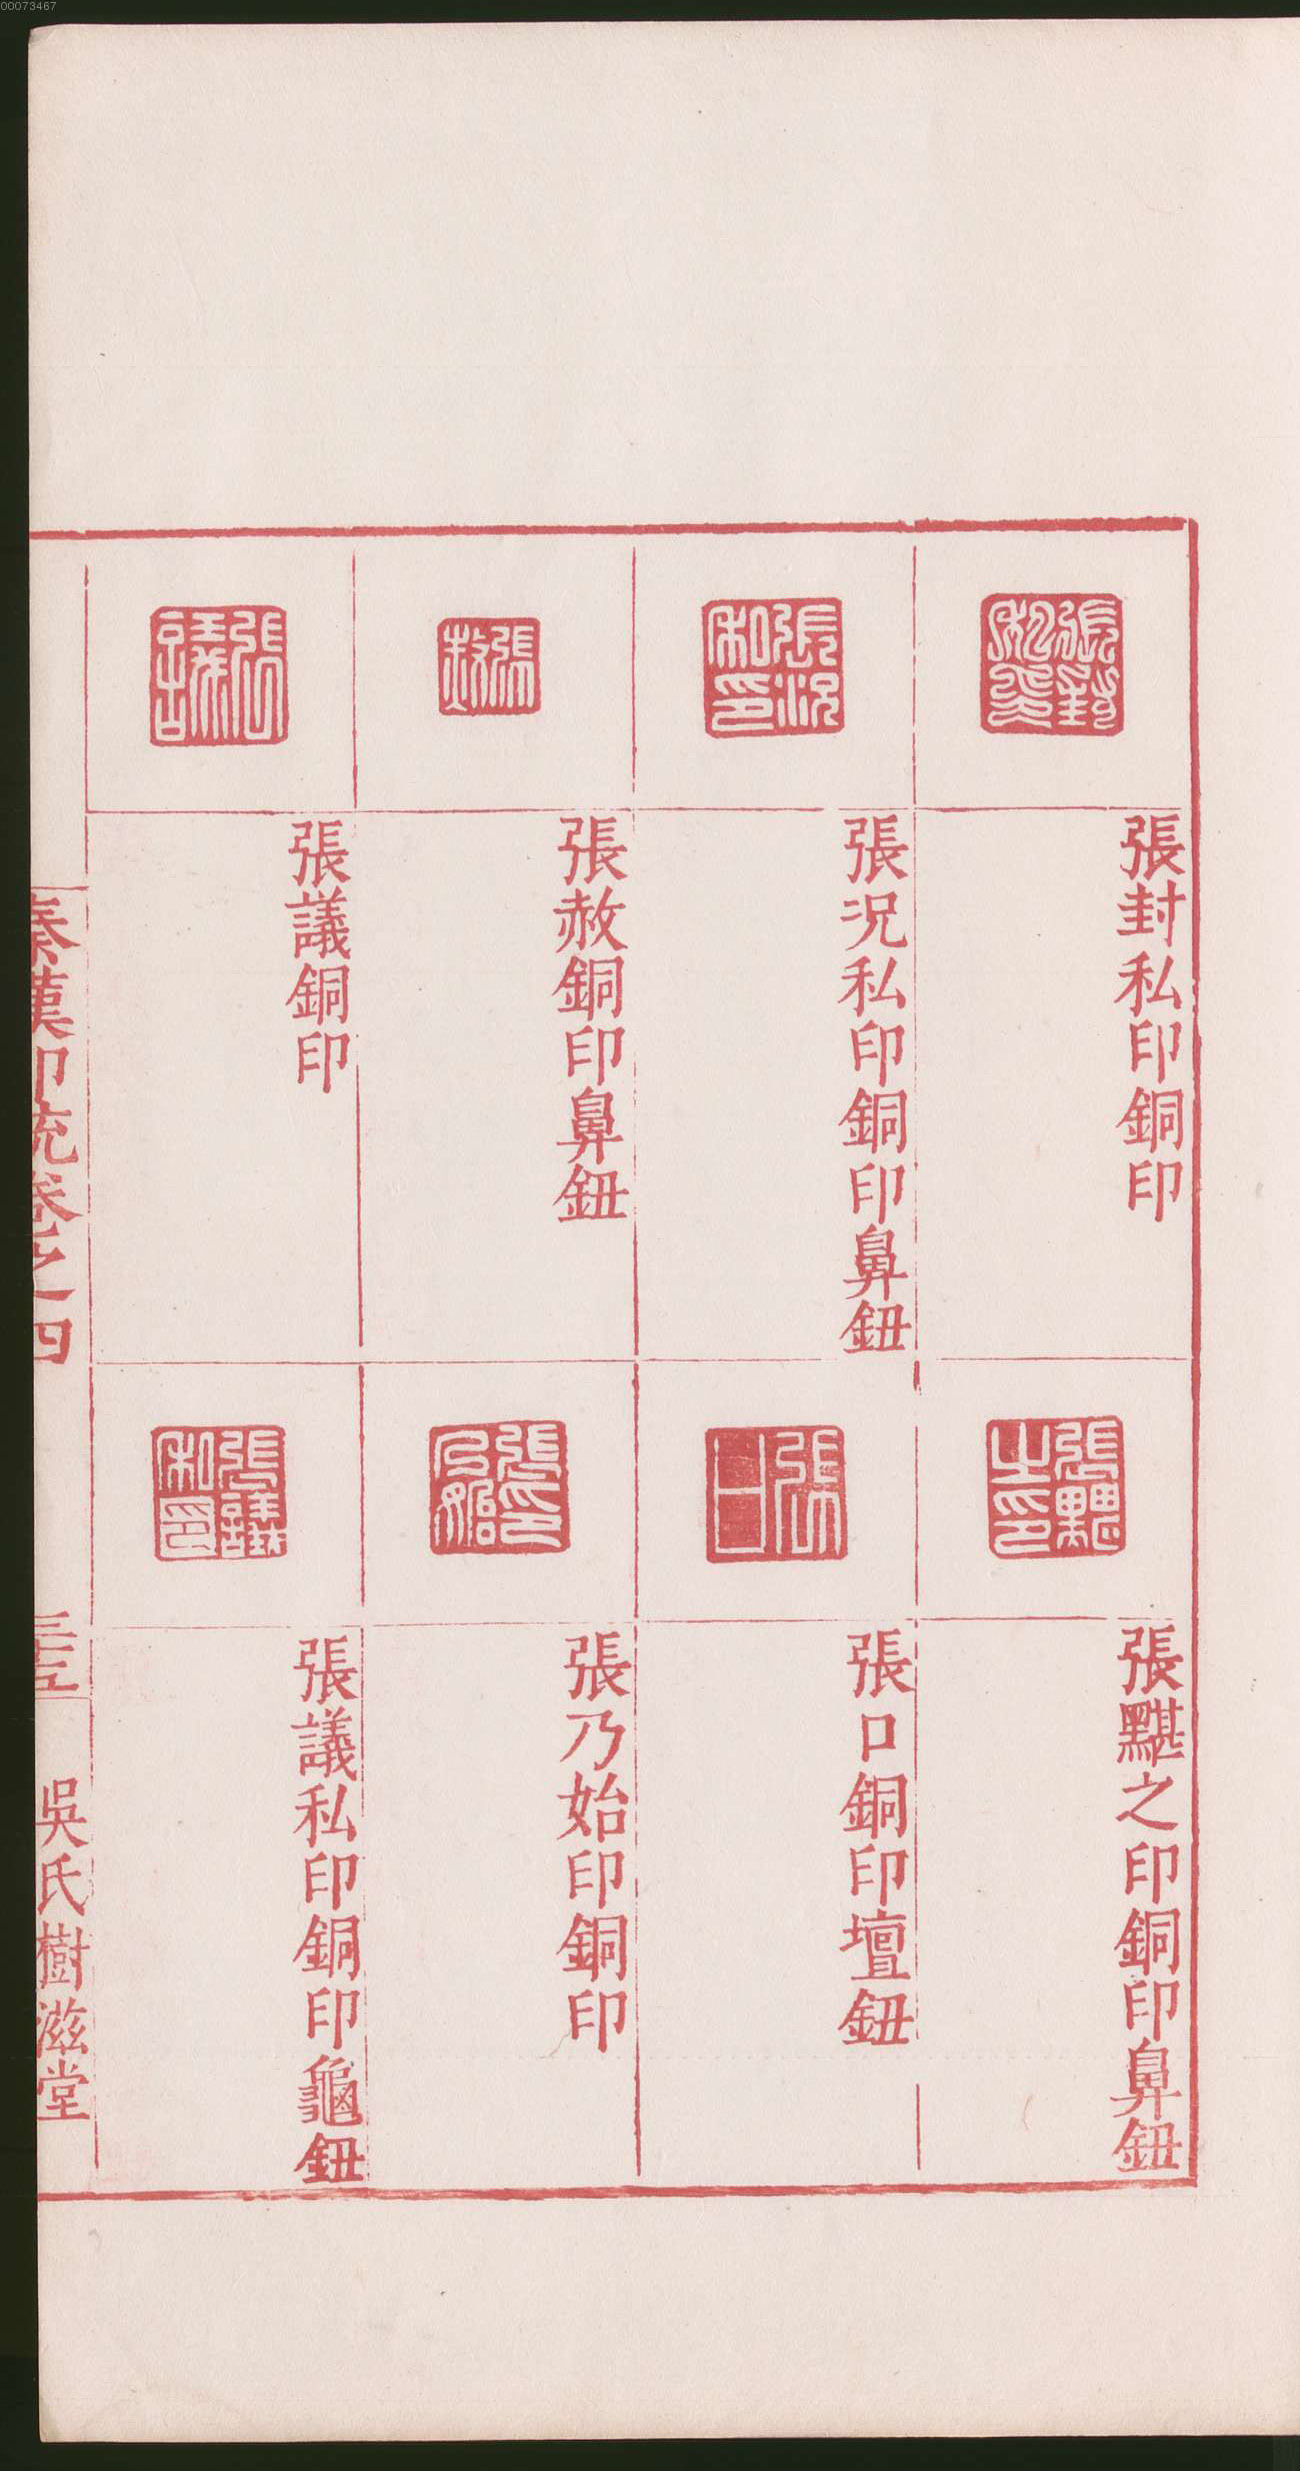 00073467
張封私印銅印
張况私印銅印鼻鈕
張赦銅印鼻鈕
張議銅印
張黮之印銅印鼻鈕
張口銅印壇鈕
張乃始印銅印
張議私印銅印龜鈕
秦漢印統卷之四
吳氏樹滋堂